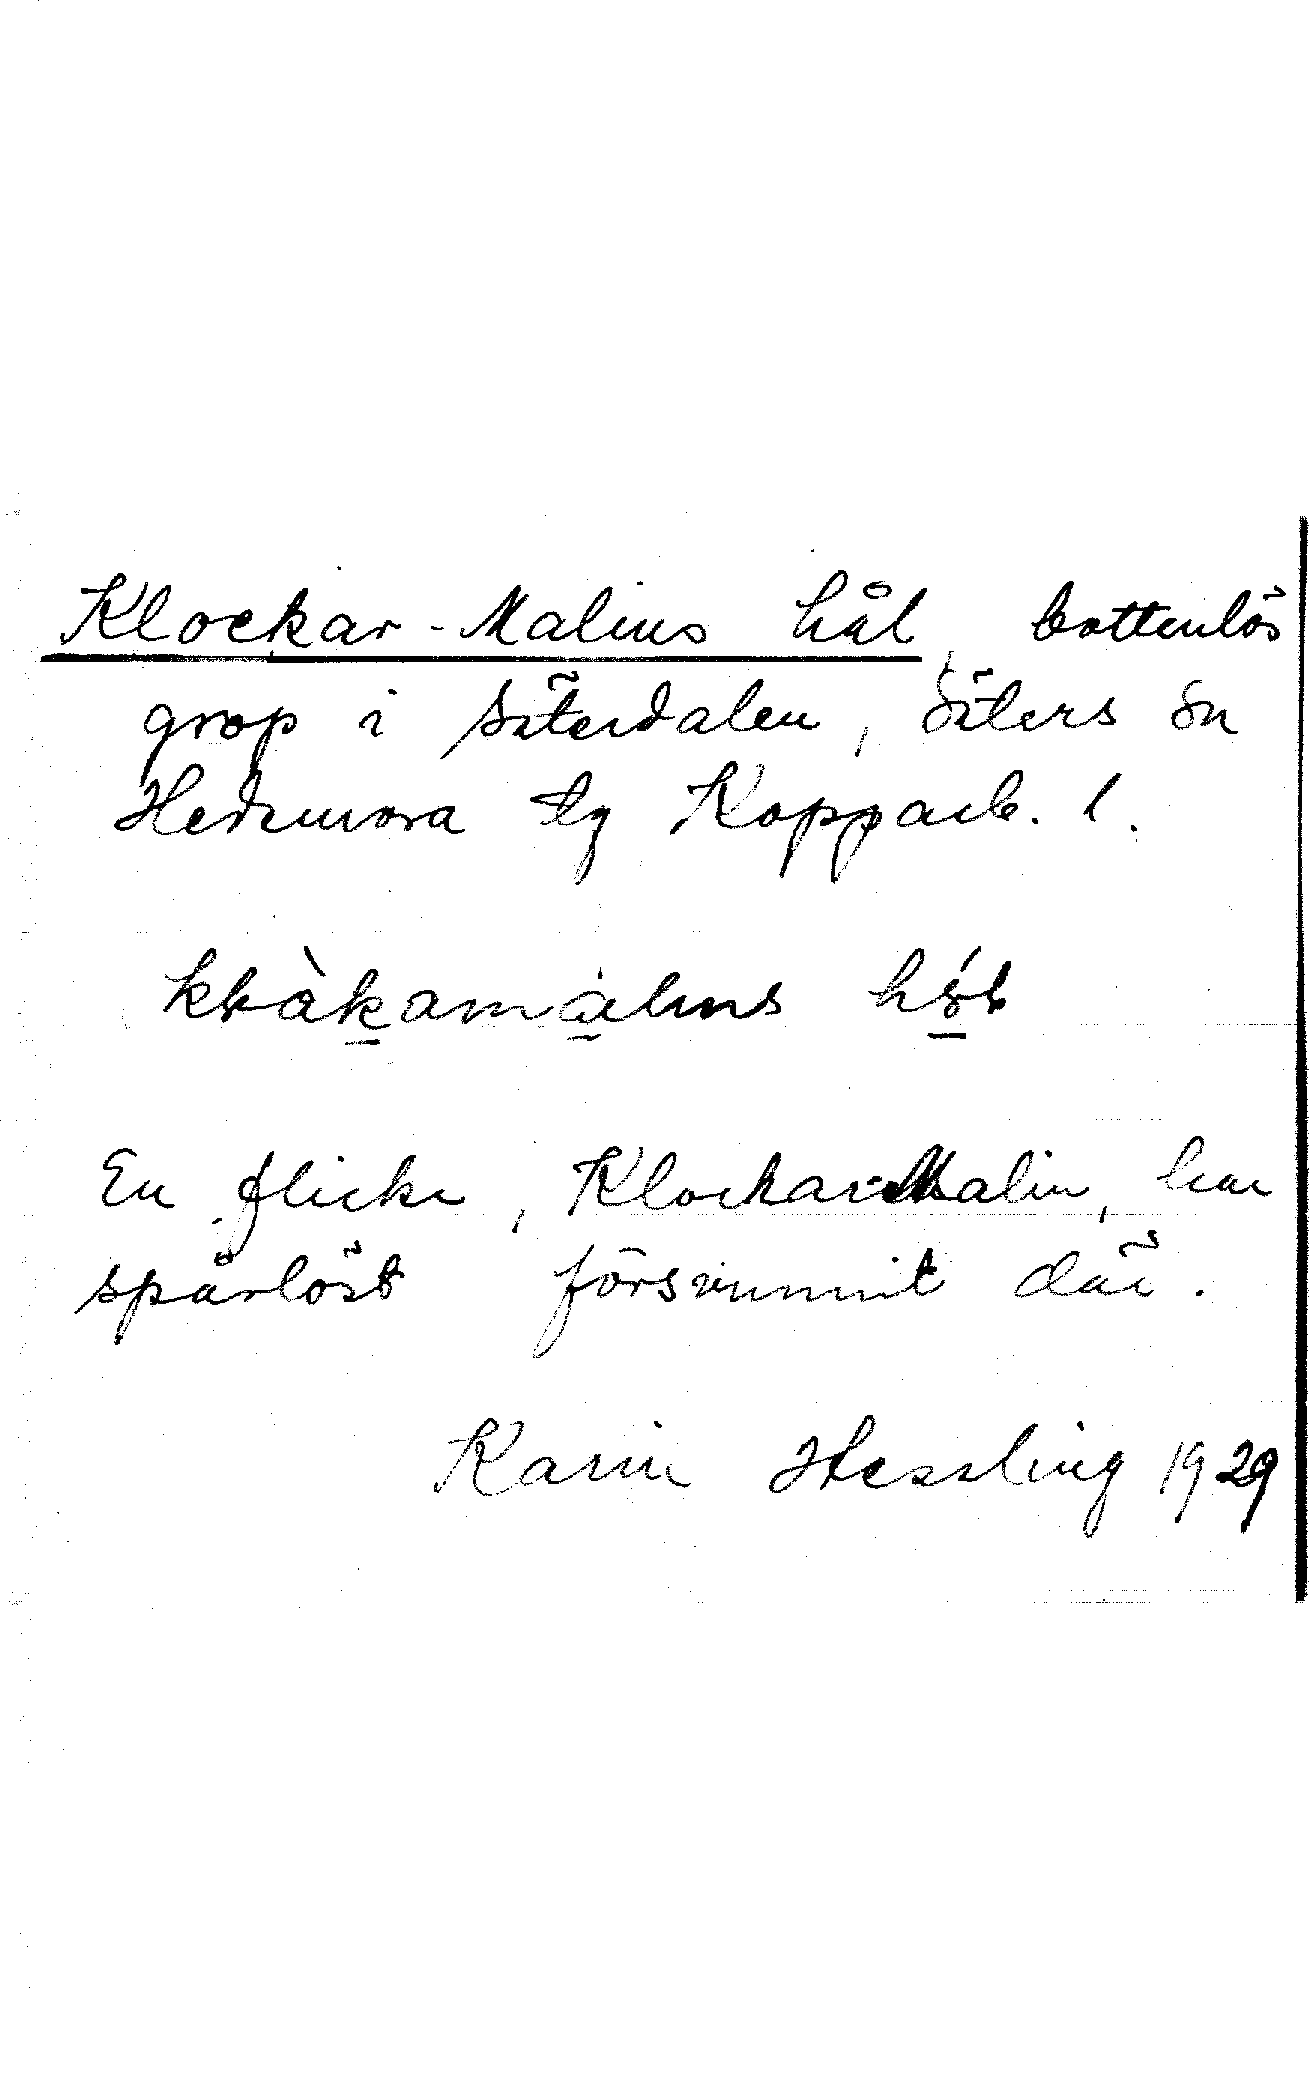 Klockar-Malins hål, bottenlös
grop i Säterdalen, Säters sn
Hedemora tg Kopparb. l.
En flicka, Klockar-Malin, har
spårlöst försvunnit där.
Karin Hessling 1929